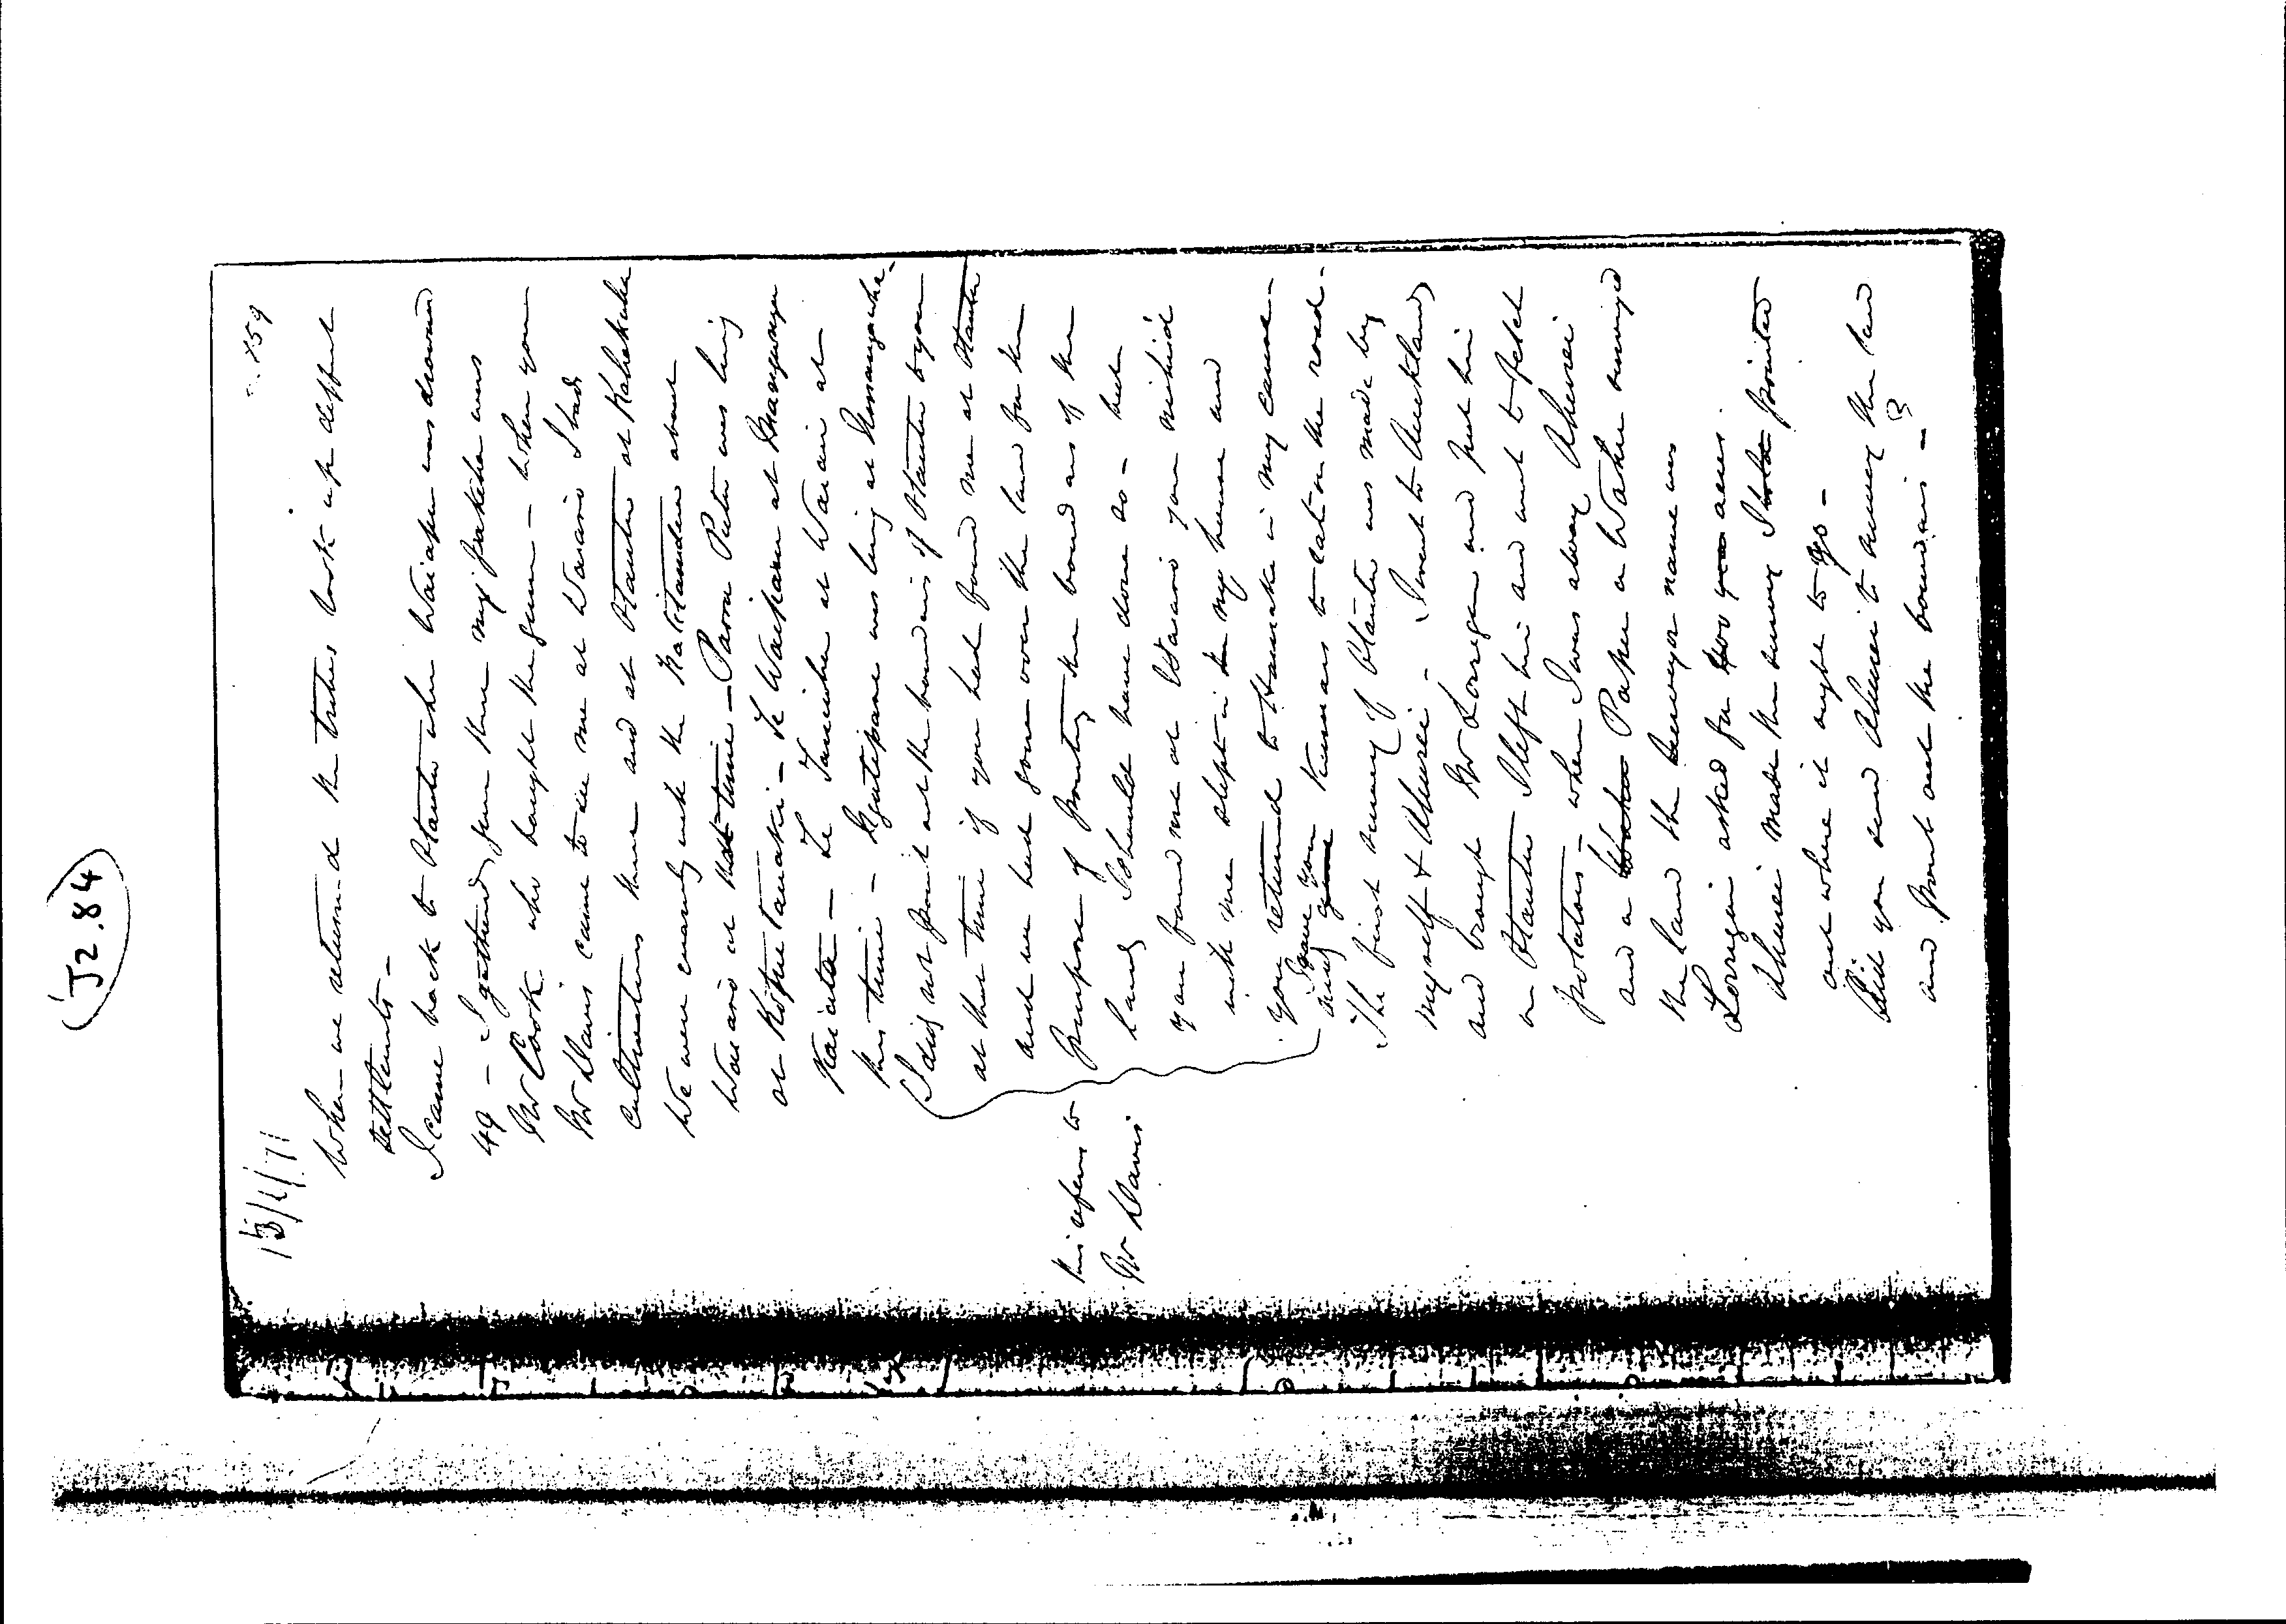 (J2.84)
159
15/1/71
When we returned the tribes took up diffent
settlements -
I came back to Otautu when Waiapu was drowned
49 - I gathered gum then my pakeha was
Mr Cook who bought the gum - when you
Mr Davis came to see me at Waiaro I had
cultivations there and at Otautu at Kahakaha
We were energy with the about
Waiaro at that time - Parou Putu was living
at Koputauaki - Te Waiparu at
- Te Taniwha at Waiau at
this time - Ngatipare was living at
I did not point out the boundaries of Otautu to you
at that time if you had found me at Otautu
and we had gone over the land for the
purpose of pointing the boundaries of the
land I should have done so - but
you found me at Waiaro you
with me slept in the my house and
you returned to Hauraki in my canoe -
I gave you
and gave kumaras to eat on the road -
this refers to
Mr Davis
The first survey of Otautu was made by
myself & Ahurei - I went to Auckland
and brought Mr Lorrigan and put him
on Otautu I left him and went to fetch
potatoes - when I was away Ahurei
and a Paper a Waka surveyed
the land the surveyor name was
Lorrigan asked for 400 acres.
Ahurei made the survey I pointed
out where it ought to go -
Did you send Ahurei to survey the land
and point out the boundaries - ?